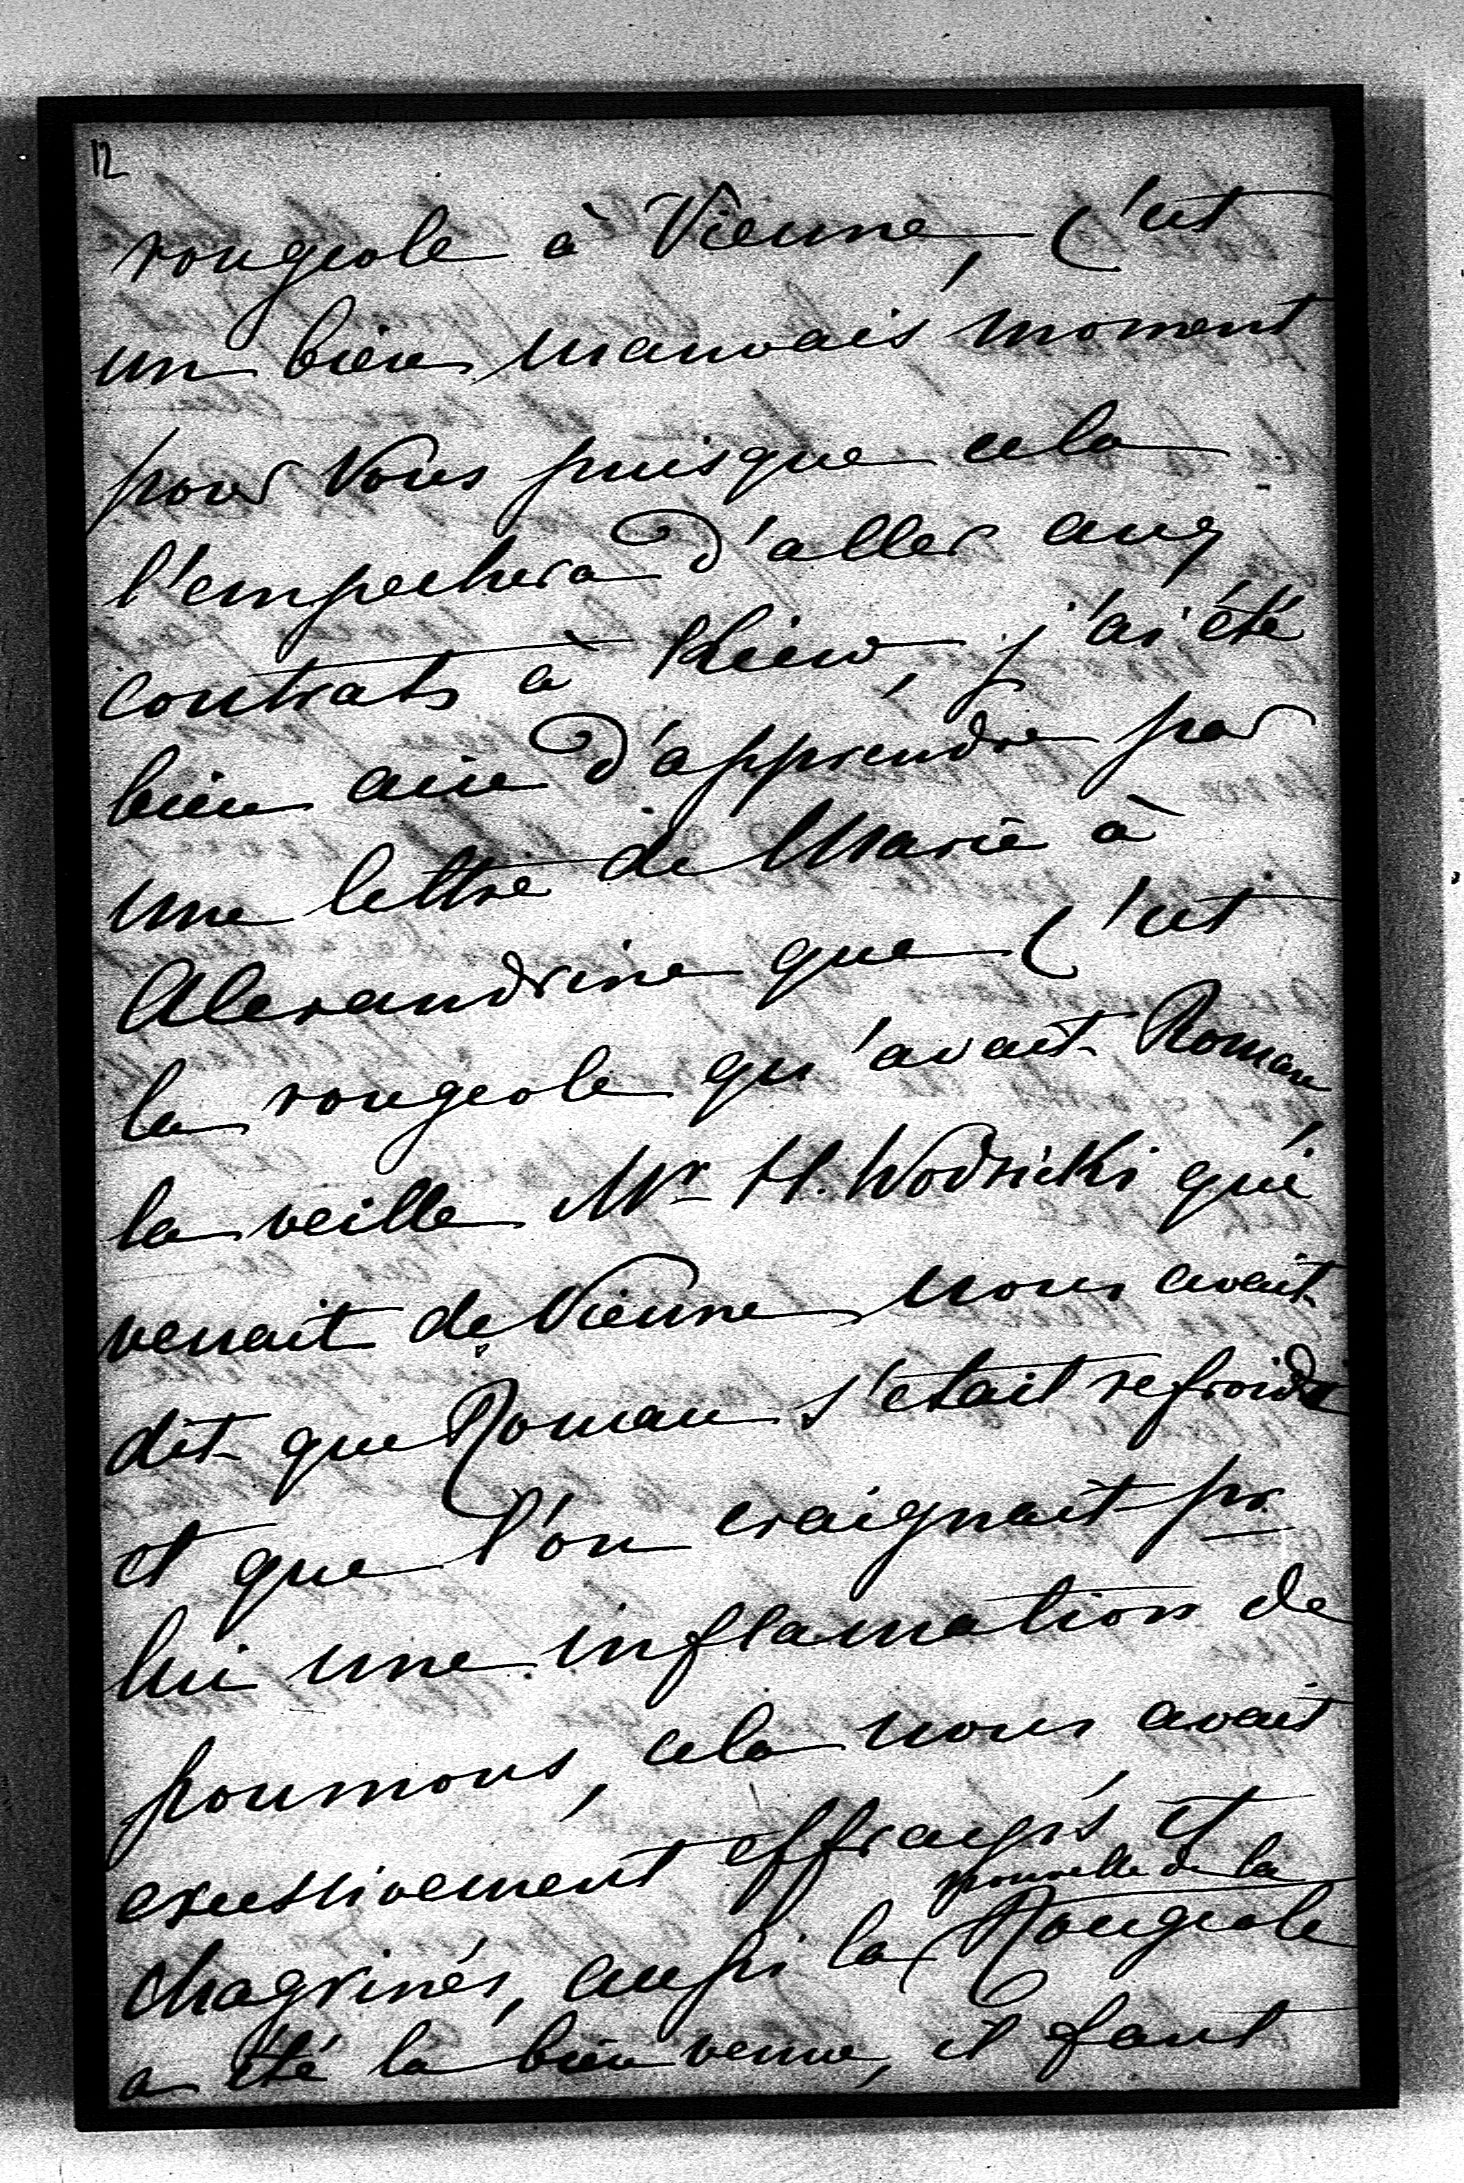 12
rougeole à Vienne, c'est
un bien mauvais moment
pour Vous puisque cela
l'empechera d'aller aux
contrats à Kiew, j'ai été
bien aise d'apprendre par
une lettre de Marie à
Alexandrine que c'est
la rougeole qu'avait Roman,
la veille Mr H. Wodzicki qui
venait de Vienne nous avait
dit que Roman s'etait refroidi
et que l'on craignait pr
lui une inflamation de
poumons, cela nous avait
excessivement effrayés et
chagrinés, aussi la nouvelle de la Rougeole
a été la bien venue, il faut